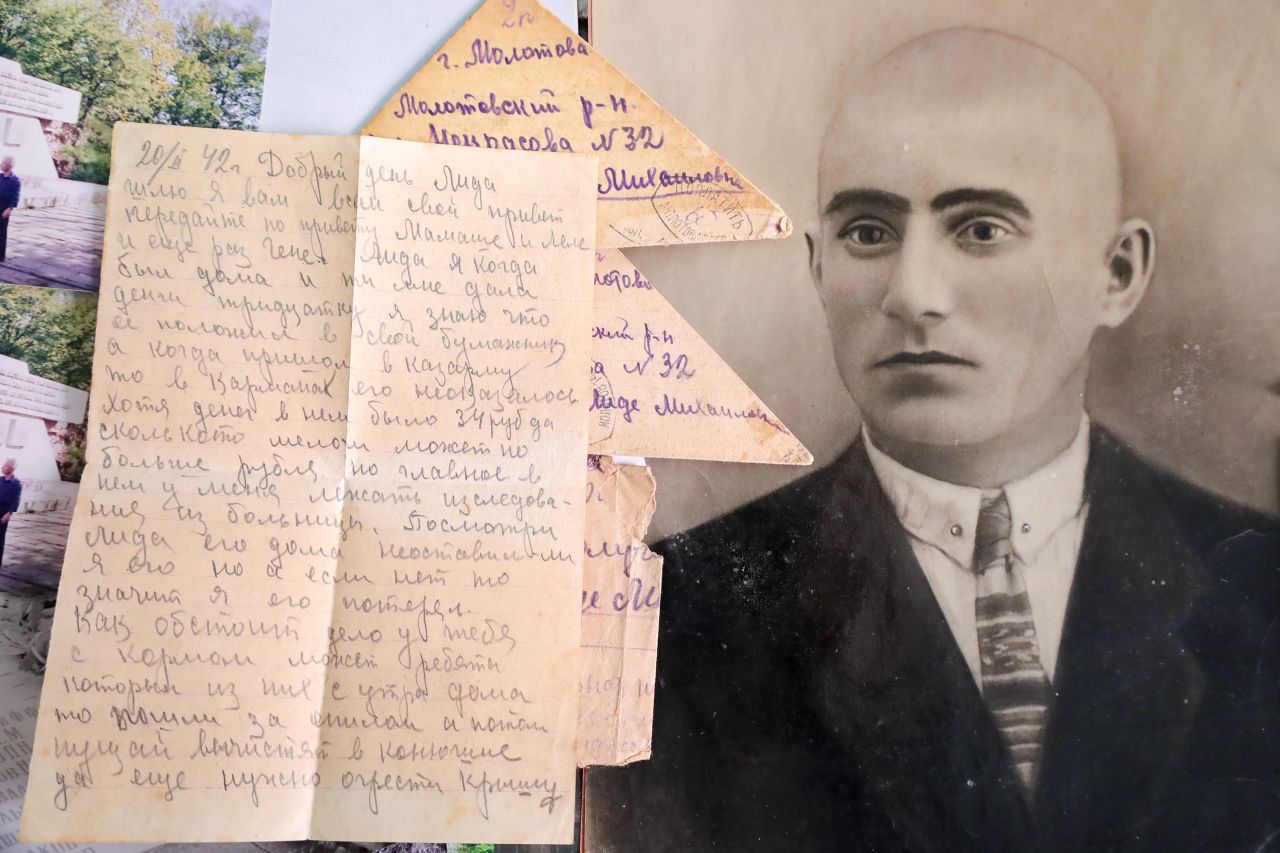 2п
г. Молотова
Молотовский р-н.
Некрасова N 32
Михаиловне
ДОПЛАТИТЬ
20/II 42 г Добрый день Лида
шлю я вам всем свой привет
передайте по привету Мамаше и Леле
и еще раз Лида я когда
был дома и ты мне дала
денги тридцатку я знаю что
ее положил в свой бумажник
а когда пришол в казарму
то в карманах его неоказалось
хотя денег в нем было 34 руб да
сколькото мелочи может по
больше рубля но главное в
нем у меня лежать изследова-
ния из больницы. Посмотри
Лида его дома неоставил ли
я его но а если нет то
значит я его потерял.
Как обстоит дело у тебя
с кормом может ребята
которыи из них с утра дома
то пошли за опилом а потом
пущай вычистят в конюшне
да еще нужно огрести крышу
р-н
N 32
Лиде Михаиловн